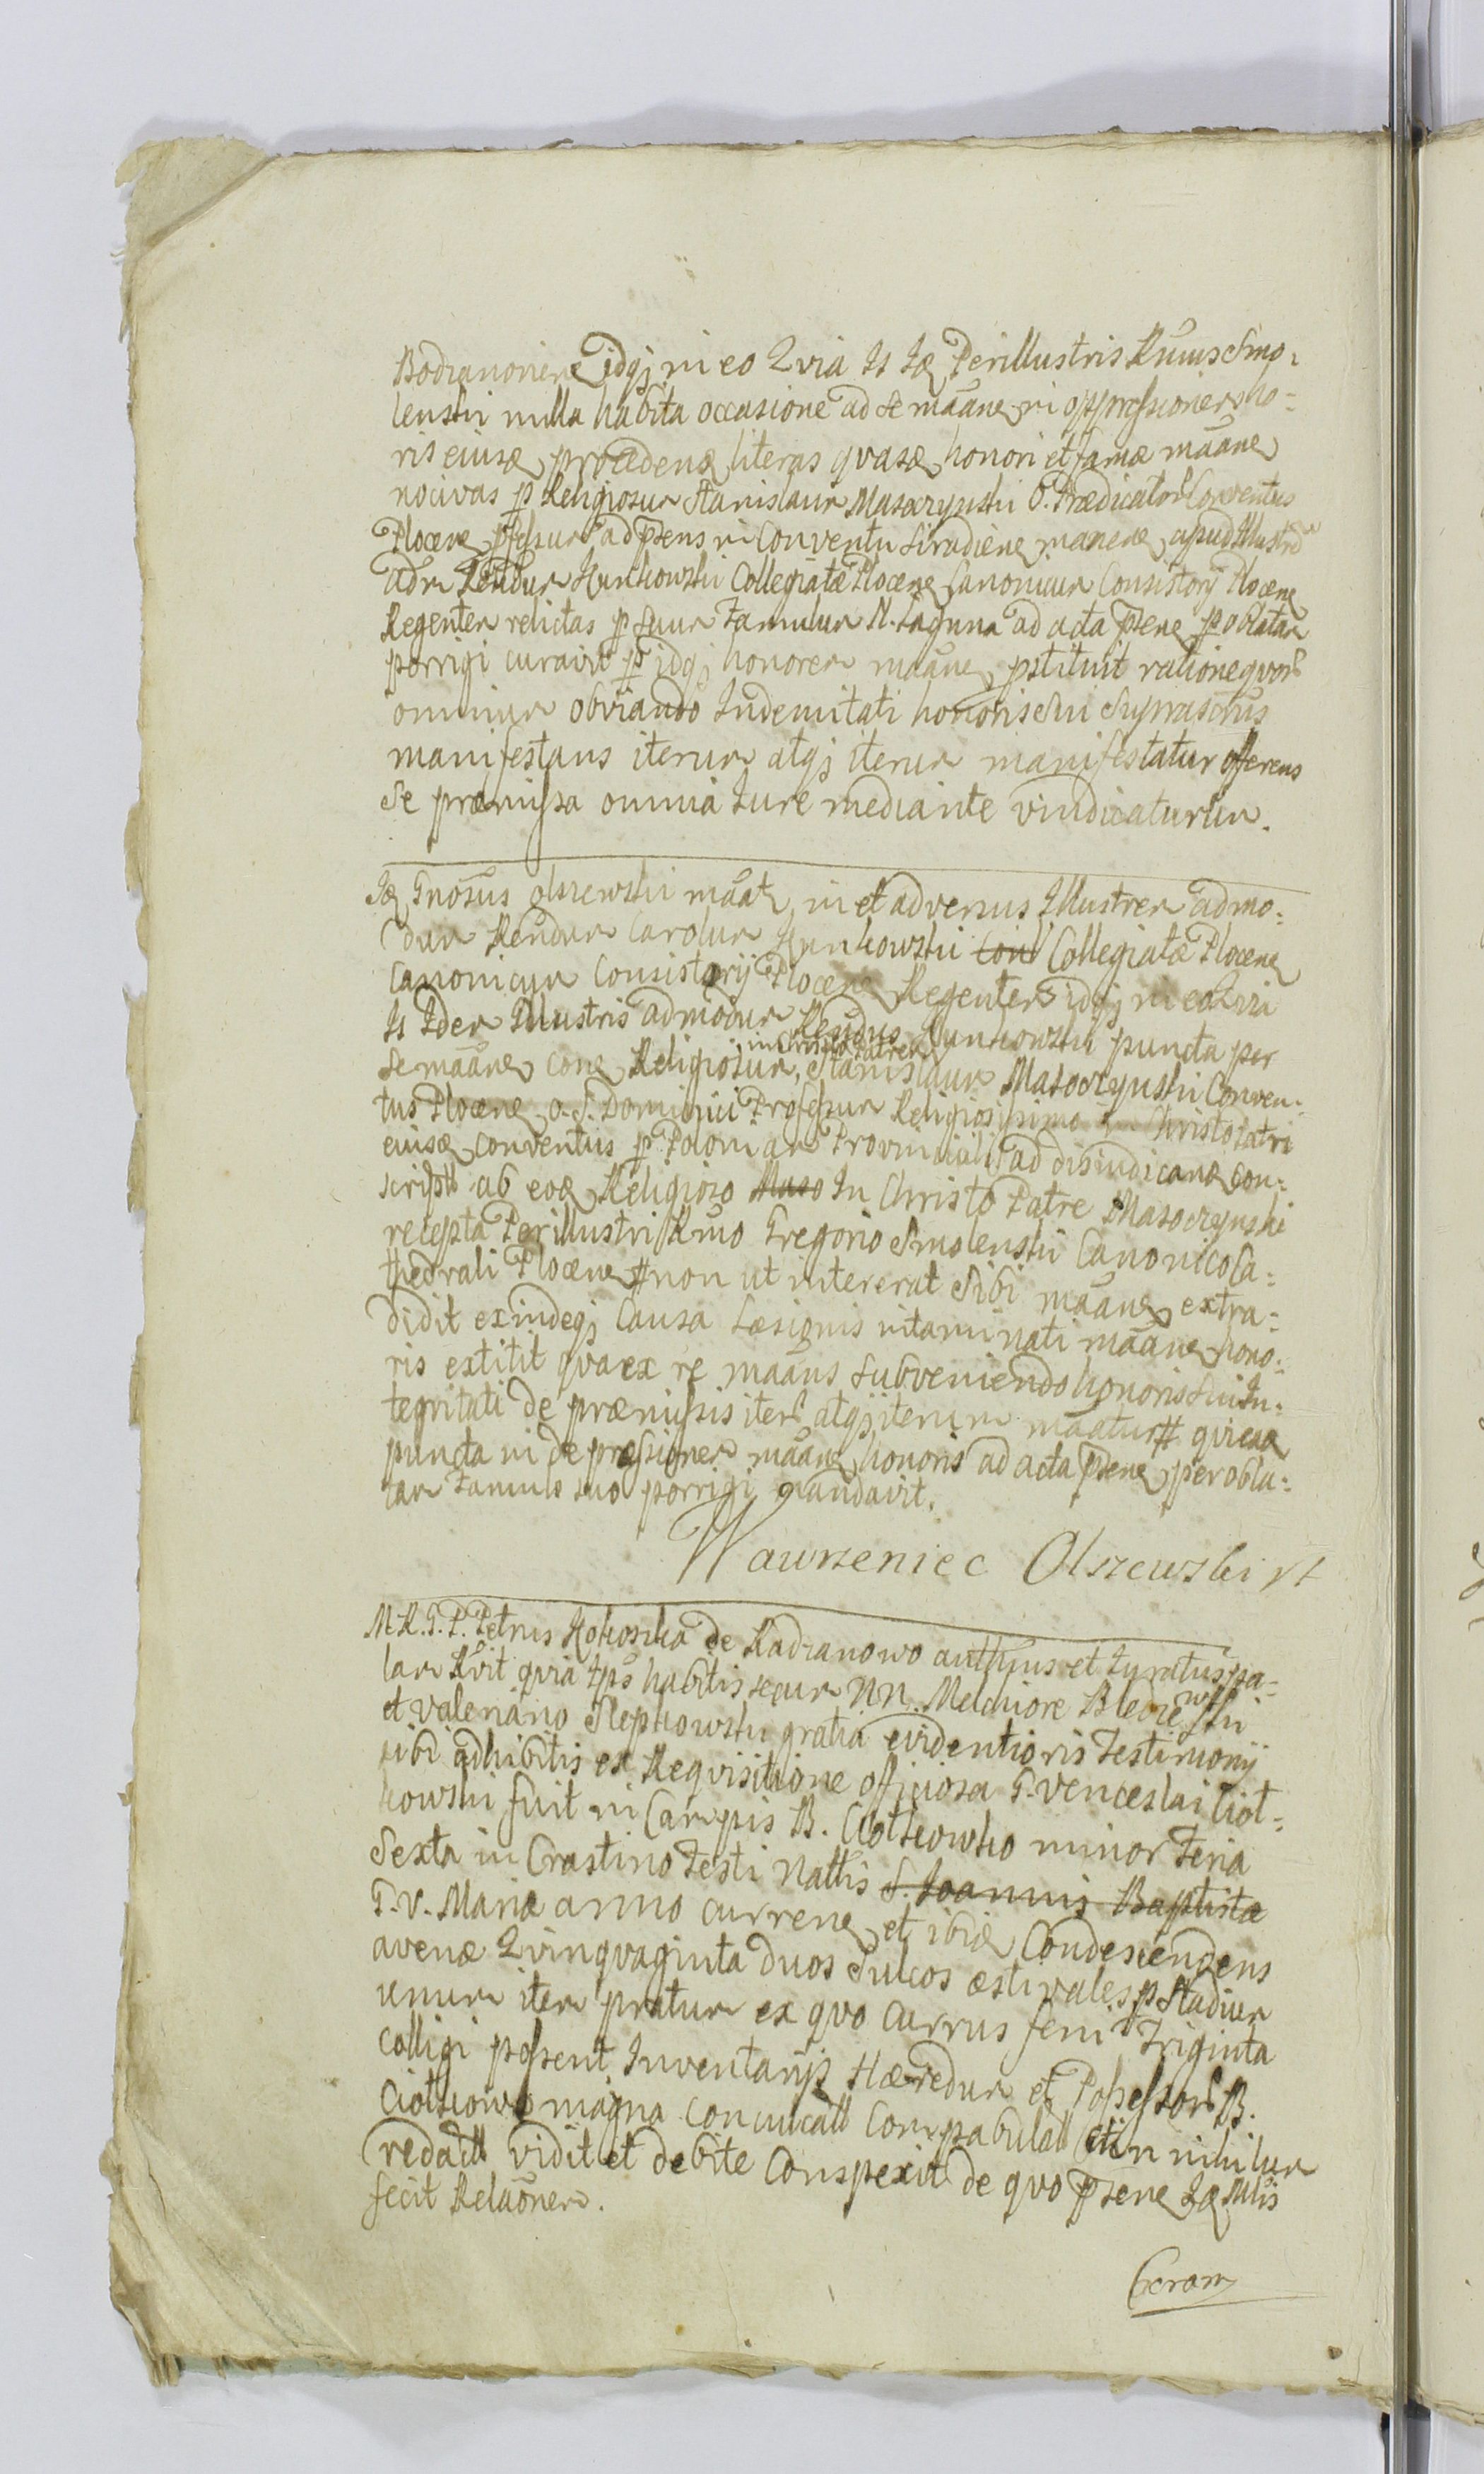 Bodzanovien idqꝫ in eo Qvia Is Id Perillustris Rn̄us Smo=
lenski nulla habita occasione ad se maāne in oppressionem ho=
ris eiusd procedens literas qvasd honori et famæ maāne
nocivas p Religiosum Stanislaum Masoczynski O. Prædicator Conventus
Plocen pfessum ad p̄sens in Conventu Siradien manen apud Illustrē
adm Rēndum Kunkowski Collegiatæ Plocen Canonicum Consistorij Plocen
Regentem relictas p suum Famulum N. Laguna ad acta p̄sen p oblatam
porrigi curavit p idqꝫ honorem maāne pstituit ratione qvor
omnium obviando Indemitati honoris sui Suprascrūs
manifestans iterum atqꝫ iterum manifestatur offerens
Se præmissa omnia Iure mediante vindicaturum.
Id Gnōsus Olszewski maāt in et adversus Illustrem admo=
dum Rēndum Carolum Kunkowski Coīl Collegiatæ Plocen
Canonicum Consistorij Plocen Regentem idqꝫ in eo Qvia
Is Idem Illustris admodum Rēndus Kunkowski puncta per
Se maāne cone Religiosum in Christo Patrem Stanislaum Masoczynski Conven=
tus Plocen O. S. Dominici Professum Religiosissimo in Christo Patri
eiusd conventus p Poloniam Provinciali ad disiudicand con=
scripta ab eod Religioso Maso In Christo Patre Masoczynski
recepta Perillustri Rn̄o Gregorio Smolenski Canonico Ca=
thedrali Plocen # non ut intererat Sibi maāne extra=
didit exindeqꝫ Causa Læsionis vitaminati maāne hono=
ris extitit qva ex re maāns subveniendo honoris sui In=
tegritati de præmissis iter atqꝫ iterum maātur # qvæd
puncta in depressionem maāne honoris ad acta p̄sen per obla=
tam Famulo suo porrigi mandavit.
Wawrzeniec Olszewski
M. R. G. P. Petrus Kokoszka de Radzanowo authius et Iuratus pa=
lam Rvit qvia Ips habitis secum NN. Melchiore Bledzewski
et Valeriano Slepkowski gratia evidentioris Testimonij
sibi adhibitis ex Reqvisitione officiosa G. Venceslai Ciot=
kowski fuit in Campis B. Ciotkowko minor Feria
Sexta in Crastino Festi Nattis S. Joannis Baptistæ
G. V. Mariæ anno curren et ibid Condescendens
avenæ Qvinqvaginta duos Sulcos æstivales p Stadium
unum item pratum ex qvo currus feni Triginta
colligi possent Inventarijs Hæredum et Possessor B.
Ciotkowo magna conculcatt Compabulatt et in nihilum
redactt vidit et debite Conspexit de qvo p̄sen Id Mlis
fecit Relaōnem.